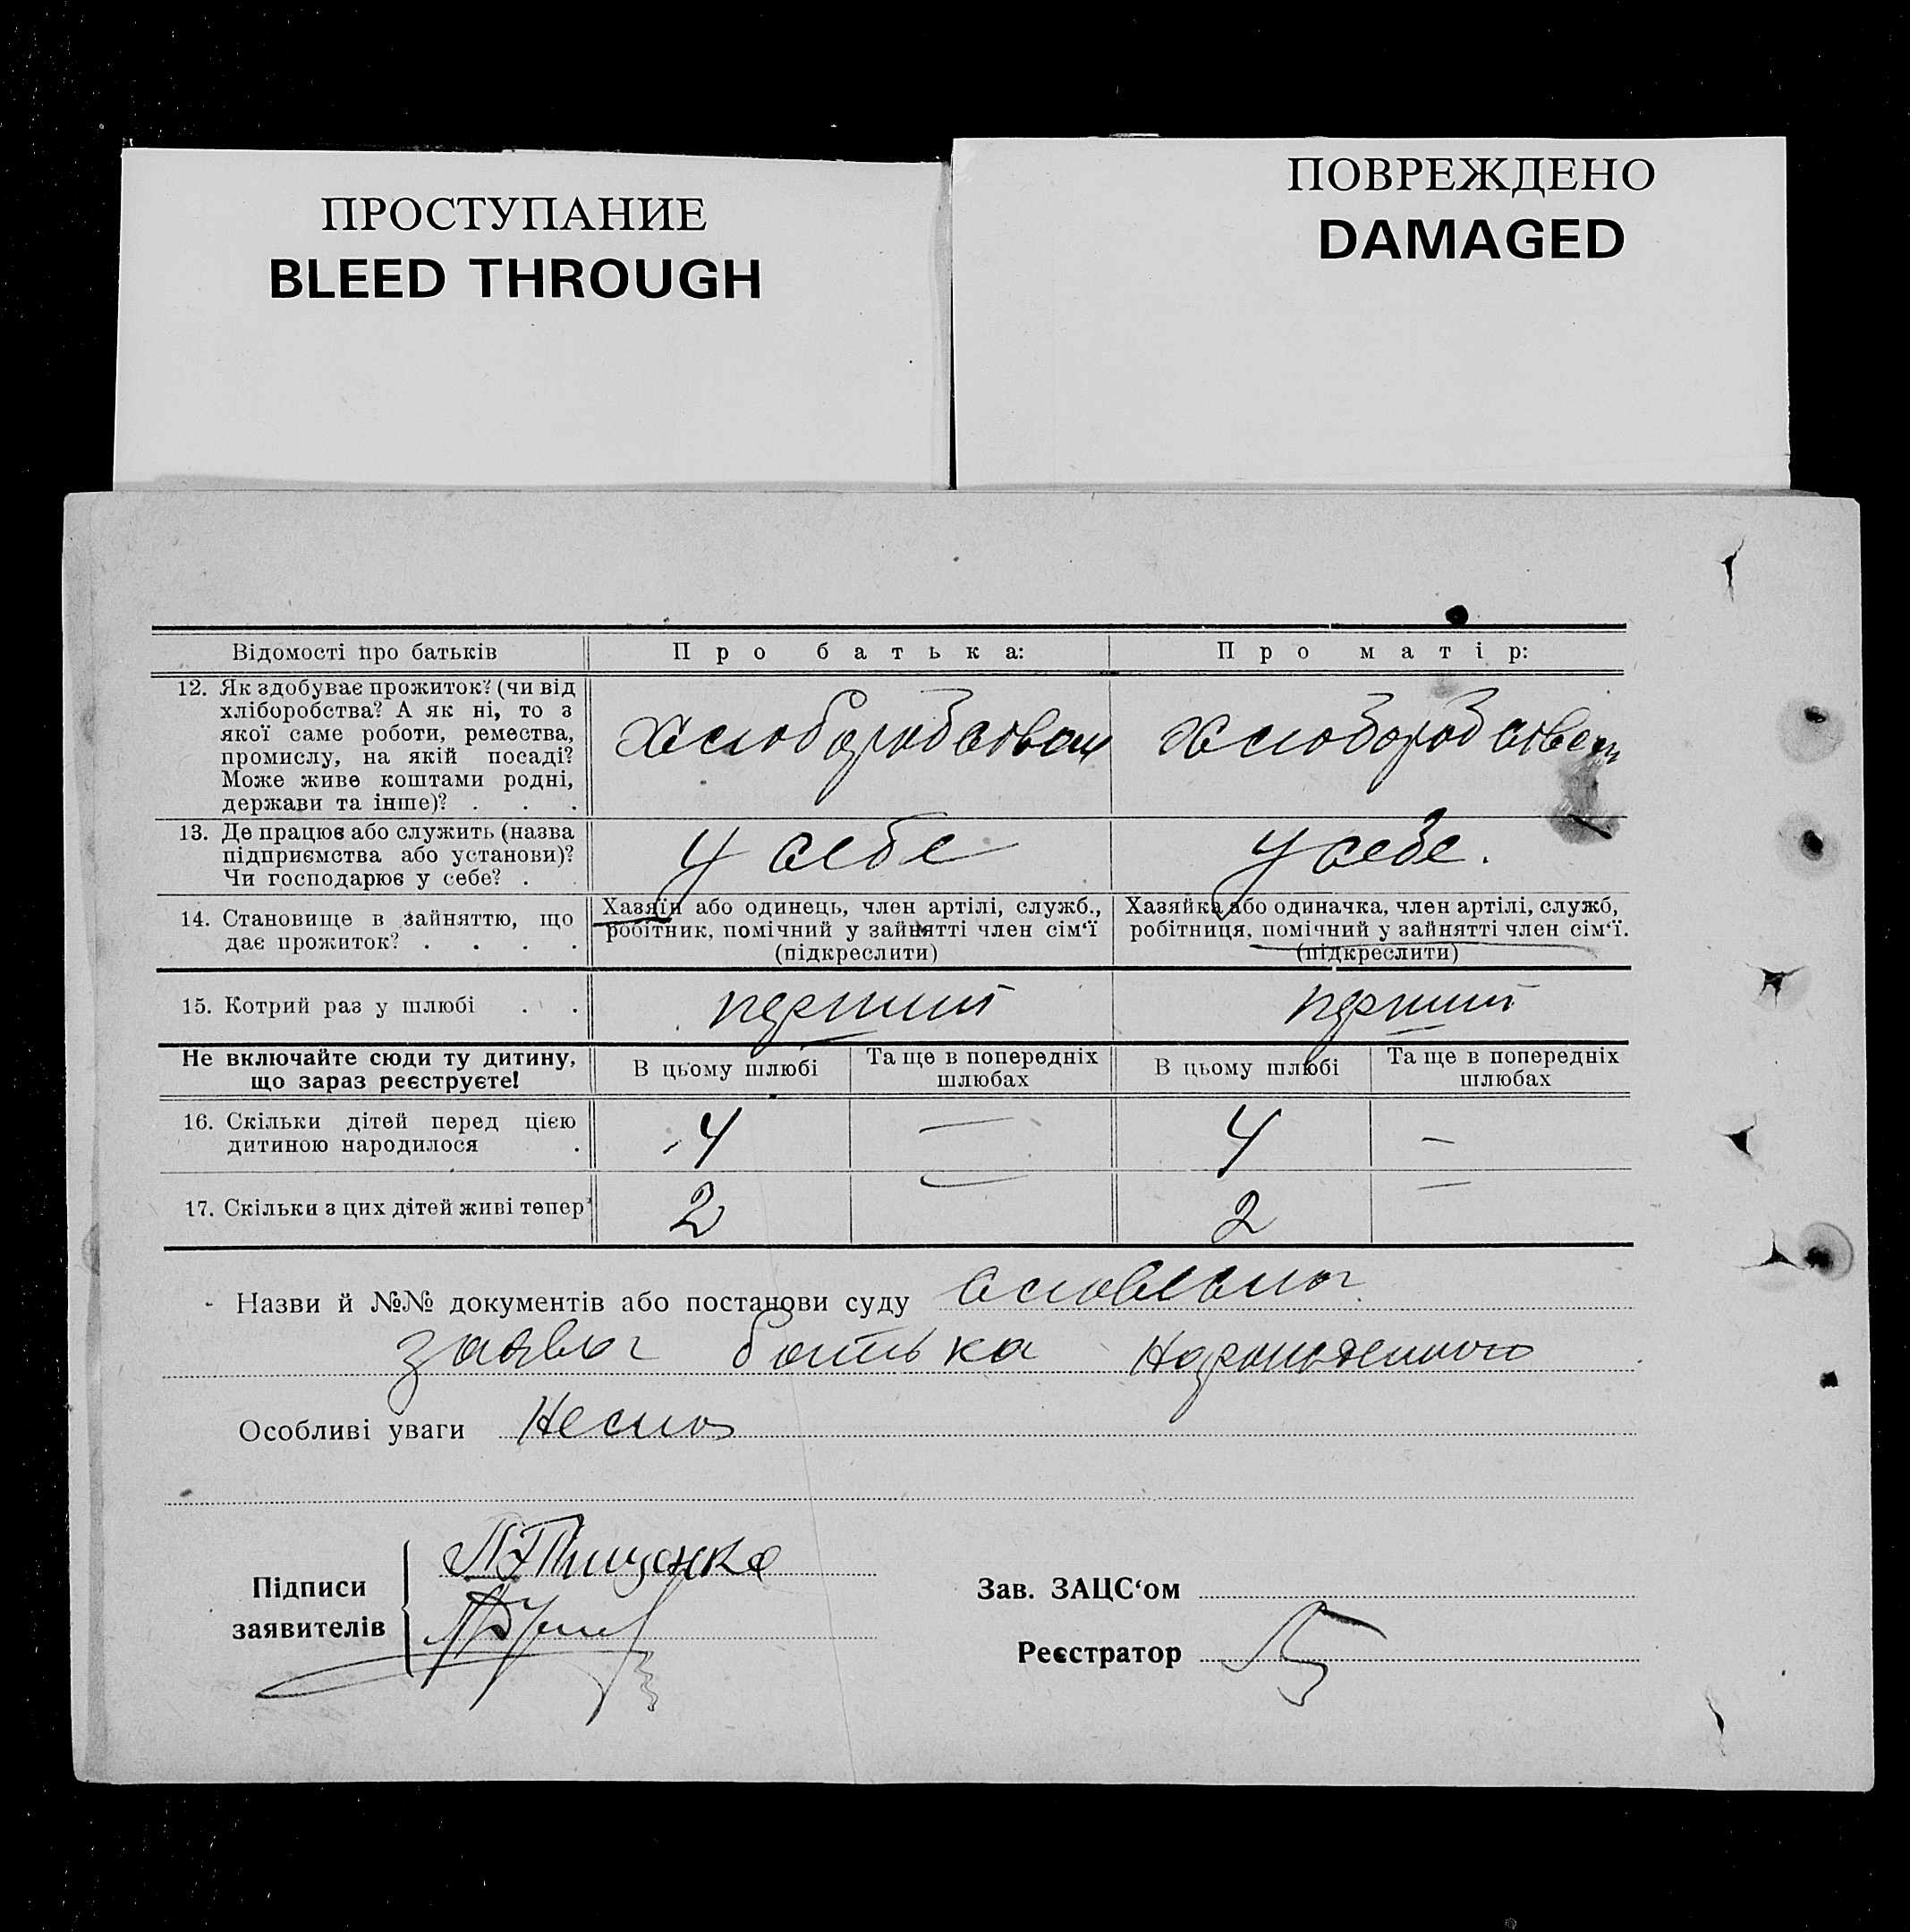 ПРОСТУПАНИЕ
BLEED THROUGH
ПОВРЕЖДЕНО
DAMAGED
Відомості про батьків
Про батька:
Про матір:
12. Як здобуває прожиток? (чи від
хліборобства? А як ні, то з
якої саме роботи, ремества,
промислу, на якій посаді?
Може живе коштами родні,
держави та інше)? . . .
хлібороб
хлібороб
13. Де працює або служить (назва
підприємства або установи)?
Чи господарює у себе? .
у себе
у себе.
14. Становище в зайняттю, що
дає прожиток? . . . .
Хазяїн або одинець, член артілі, служб.,
робітник, помічний у зайнятті член сім‘ї
(підкреслити)
Хазяйка або одиначка, член артілі, служб,
робітниця, помічний у зайнятті член сім‘ї.
(підкреслити)
15. Котрий раз у шлюбі . .
перший
перший
Не включайте сюди ту дитину,
що зараз реєструєте!
В цьому шлюбі
Та ще в попередніх
шлюбах
В цьому шлюбі
Та ще в попередніх
шлюбах
16. Скільки дітей перед цією
дитиною народилося .
4
—
4
—
17. Скільки з цих дітей живі тепер
2
—
2
—
Назви й №№ документів або постанови суду
батька
Особливі уваги
Підписи
заявителів
Тищенко
Зав. ЗАЦС‘ом
Реєстратор